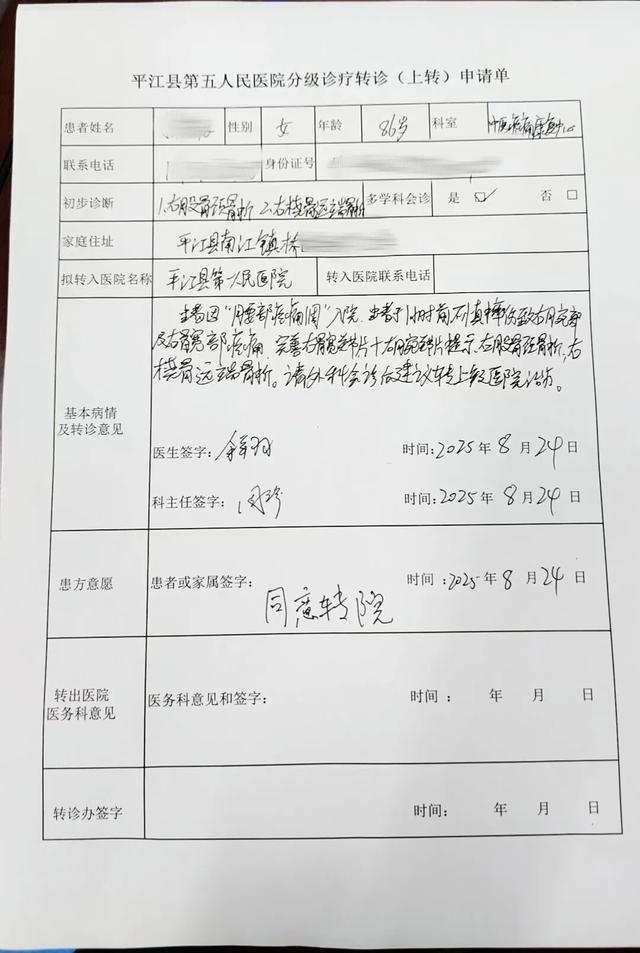 平江县第五人民医院分级诊疗转诊（上转）申请单
患者姓名 性别 女 年龄 86岁 科室 中医疼痛康复中心
联系电话 身份证号
初步诊断 1.右股骨颈骨折 2.右桡骨远端骨折 多学科会诊 是 ☑ 否 □
家庭住址 平江县南江镇
拟转入医院名称 平江县第一人民医院 转入医院联系电话
患者因“ 腰部疼痛 周”入院，患者于1小时前不慎摔伤致右腕部
及右髋部疼痛，完善右髋 片+右腕 片提示：右股骨颈骨折，右
桡骨远端骨折。请外科会诊后建议转上级医院治疗。
基本病情
及转诊意见
医生签字： 时间：2025年 8 月 24 日
科主任签字： 时间：2025年 8 月 24 日
患方意愿 患者或家属签字： 时间：2025年 8 月 24 日
同意转院
转出医院
医务科意见 医务科意见和签字： 时间： 年 月 日
转诊办签字 时间： 年 月 日